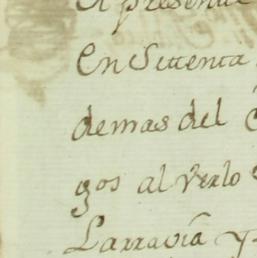 el presente
en Setenta
demas del
gos al verlo
Larravia y